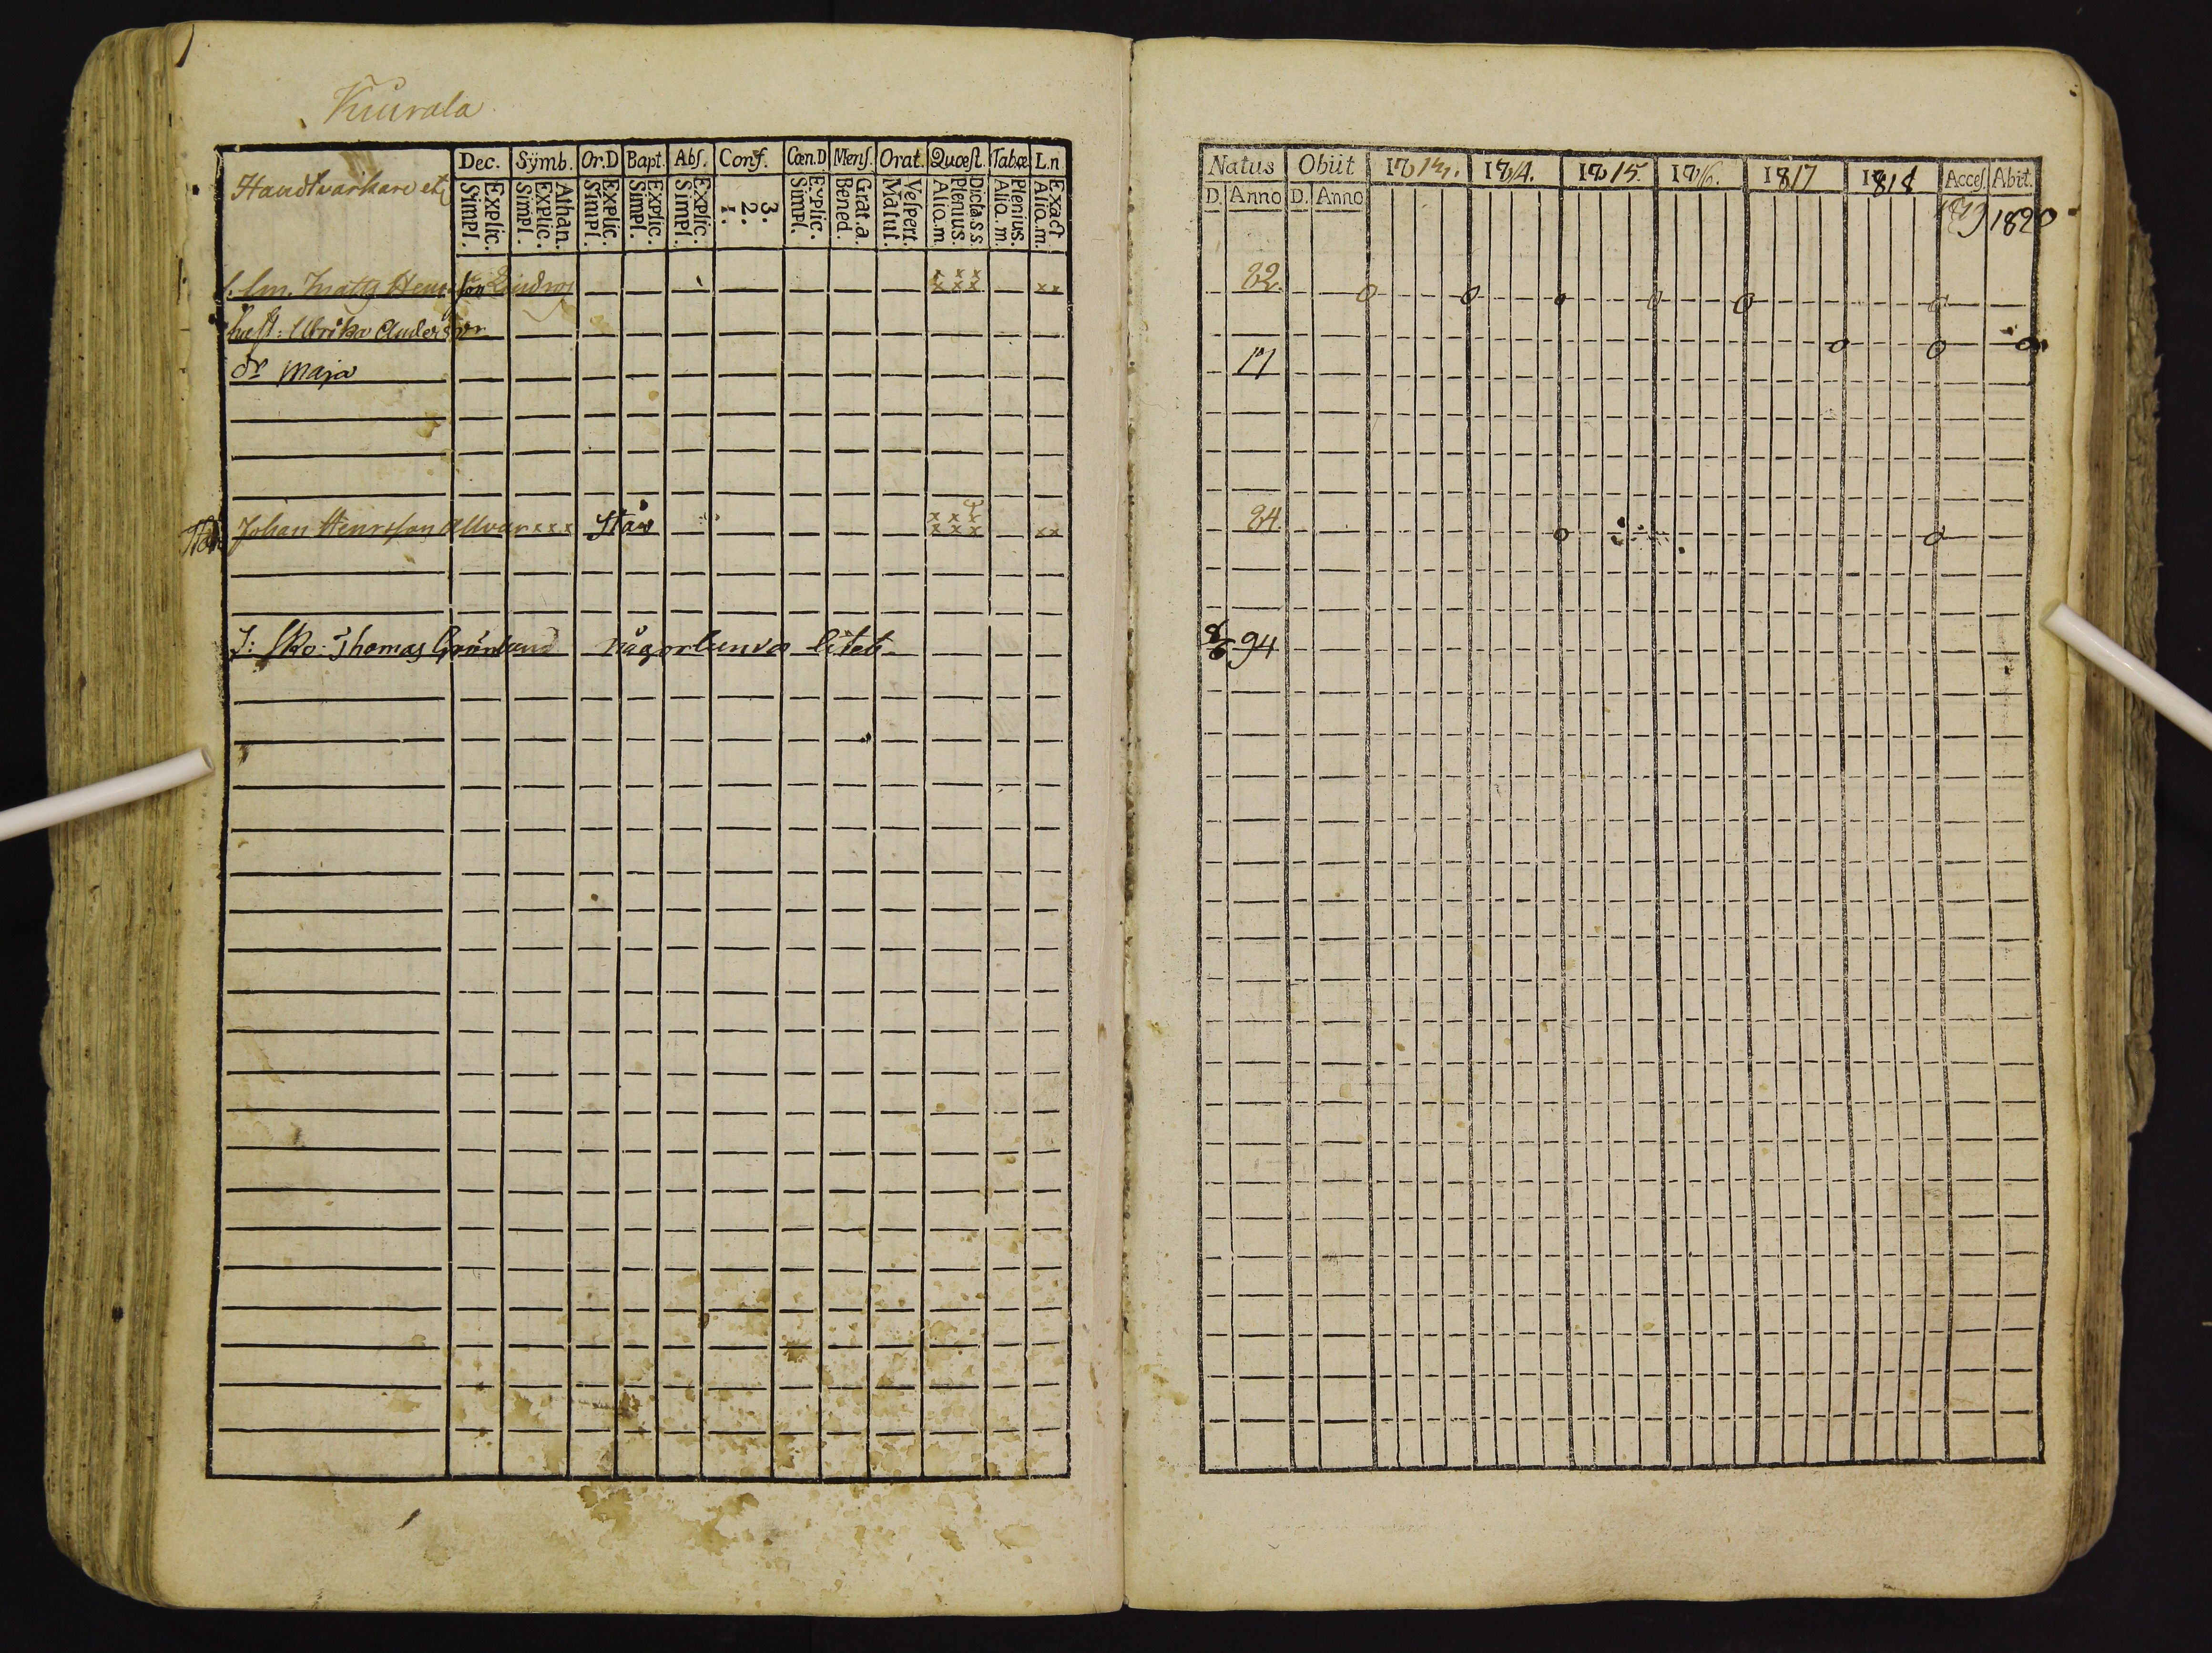 Kuurala
Dec. Sÿmb. Or.D Bapt. Abſ. Conf. Cœn.D Menſ. Orat. Quœſt. Tabœ L.n
Handtvärkare etc
Explic. Simpl. Athan. Explic. Simpl. Explic. Simpl. Explic. Simpl. Explic. Simpl. 3. 2. 1. Explic. Simpl. Grat. a. Bened. Veſpert. Matut. Dicta.s.s. Plenius. Aliq.m. Plenius. Aliq.m. Exact Aliq.m.
Matts Henr. ſon Lindros x x x x x x x x
huſt: Ulrika Andersdr
dr Maja
Johan Henrsſon Allvar x x x Står x x x x x x x x
J: Sko: Thomas Grönlund någorlunda litet
Natus Obiit 1813. 1814. 1815. 1816. 1817 1818 Acceſ. Abit.
D. Anno D. Anno
1819 1820
82
17
84
8/6 94